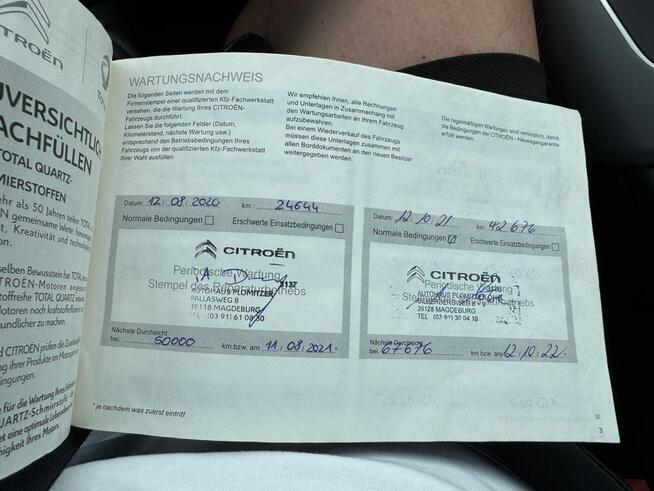 CITROËN
TOTAL
UVERSICHTLICH
ACHFÜLLEN
TOTAL QUARTZ-
MIERSTOFFEN
ehr als 50 Jahren teilen TOTAL
EN gemeinsame Werte:
t, Kreativität und
selben Bewusstsein hat TOTAL
ITROËN-Motoren
stoffreihe TOTAL QUARTZ
otoren noch kraftstoffeffizienter
undlicher zu machen.
D CITROËN prüfen die
ng ihrer Produkte im
ingungen.
e für die Wartung Ihres
UARTZ-Schmierstoffe
et eine optimale Lebensdauer
higkeit Ihres Motors.
WARTUNGSNACHWEIS
Die folgenden Seiten werden mit dem
Firmenstempel einer qualifizierten Kfz-Fachwerkstatt
versehen, die die Wartung Ihres CITROËN-
Fahrzeugs durchführt.
Lassen Sie die folgenden Felder (Datum,
Kilometerstand, nächste Wartung usw.)
entsprechend den Betriebsbedingungen Ihres
Fahrzeugs von der qualifizierten Kfz-Fachwerkstatt
Ihrer Wahl ausfüllen.
Wir empfehlen Ihnen, alle Rechnungen
und Unterlagen in Zusammenhang mit
den Wartungsarbeiten an Ihrem Fahrzeug
aufzubewahren.
Bei einem Wiederverkauf des Fahrzeugs
müssen diese Unterlagen zusammen mit
allen Borddokumenten an den neuen Besitzer
weitergegeben werden.
Die regelmäßigen Wartungen sind verbindlich, damit
die Bedingungen der CITROËN - Neuwagengarantie
erfüllt werden.
Datum: 12 / 08 / 2020 km : 24644
Normale Bedingungen Erschwerte Einsatzbedingungen
CITROËN
Periodische Wartung
Stempel des Reparaturbetriebs
AUTOHAUS PLOMITZER
PALLASWEG 8
39118 MAGDEBURG
TEL. (03 91) 61 08 30
Nächste Durchsicht
bei 50000 km bzw. am 11 / 08 / 2021.
Datum: 12.10.21 km 42 676
Normale Bedingungen Erschwerte Einsatzbedingungen
CITROËN
Periodische Wartung
Stempel des Reparaturbetriebs
AUTOHAUS PLOMITZER
39128 MAGDEBURG
TEL (03 91) 30 04 10
Nächste Durchsicht
bei 67676 km bzw. am 12 / 10 / 22.
* je nachdem was zuerst eintritt
3